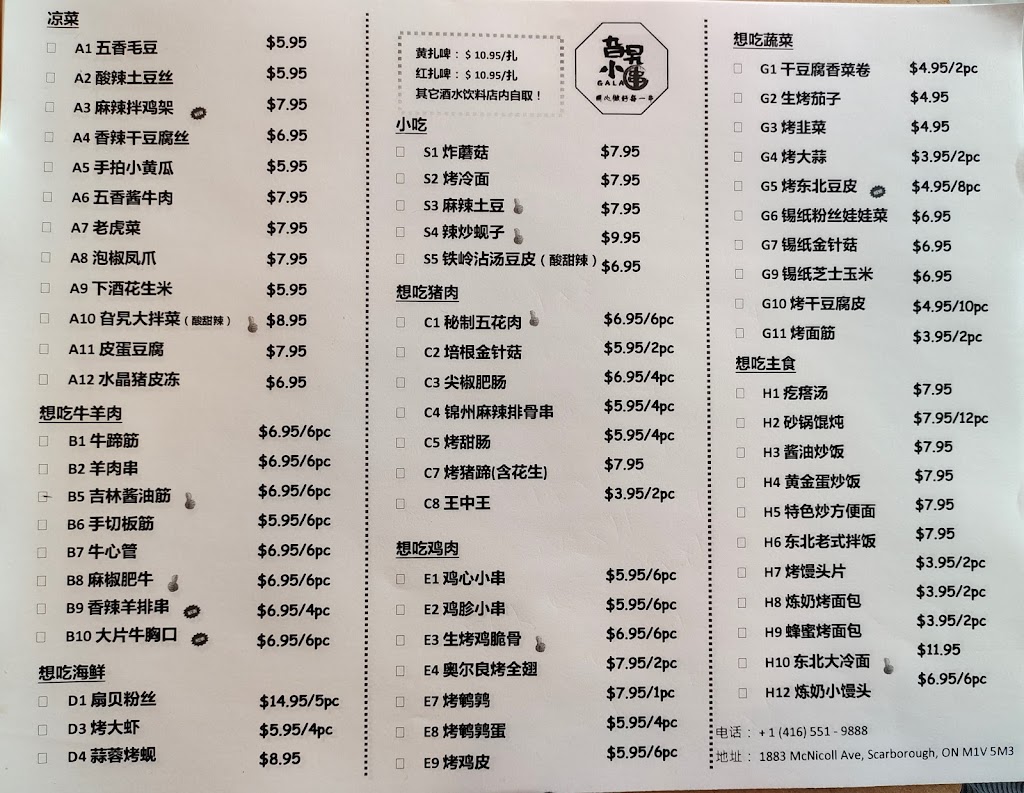 凉菜
A1 五香毛豆 $5.95
A2 酸辣土豆丝 $5.95
A3 麻辣拌鸡架 $7.95
A4 香辣干豆腐丝 $6.95
A5 手拍小黄瓜 $5.95
A6 五香酱牛肉 $7.95
A7 老虎菜 $7.95
A8 泡椒凤爪 $7.95
A9 下酒花生米 $5.95
A10 旮旯大拌菜（酸甜辣） $8.95
A11 皮蛋豆腐 $7.95
A12 水晶猪皮冻 $6.95
想吃牛羊肉
B1 牛蹄筋 $6.95/6pc
B2 羊肉串 $6.95/6pc
B5 吉林酱油筋 $6.95/6pc
B6 手切板筋 $5.95/6pc
B7 牛心管 $6.95/6pc
B8 麻椒肥牛 $6.95/6pc
B9 香辣羊排串 $6.95/4pc
B10 大片牛胸口 $6.95/6pc
想吃海鲜
D1 扇贝粉丝 $14.95/5pc
D3 烤大虾 $5.95/4pc
D4 蒜蓉烤蚬 $8.95
黄扎啤：$ 10.95/扎
红扎啤：$ 10.95/扎
其它酒水饮料店内自取！
旮旯
小串
GALA
用心做好每一串
小吃
S1 炸蘑菇 $7.95
S2 烤冷面 $7.95
S3 麻辣土豆 $7.95
S4 辣炒蚬子 $9.95
S5 铁岭沾汤豆皮（酸甜辣） $6.95
想吃猪肉
C1 秘制五花肉 $6.95/6pc
C2 培根金针菇 $5.95/2pc
C3 尖椒肥肠 $6.95/4pc
C4 锦州麻辣排骨串 $5.95/4pc
C5 烤甜肠 $5.95/4pc
C7 烤猪蹄(含花生) $7.95
C8 王中王 $3.95/2pc
想吃鸡肉
E1 鸡心小串 $5.95/6pc
E2 鸡胗小串 $5.95/6pc
E3 生烤鸡脆骨 $6.95/6pc
E4 奥尔良烤全翅 $7.95/2pc
E7 烤鹌鹑 $7.95/1pc
E8 烤鹌鹑蛋 $5.95/4pc
E9 烤鸡皮 $5.95/6pc
想吃蔬菜
G1 干豆腐香菜卷 $4.95/2pc
G2 生烤茄子 $4.95
G3 烤韭菜 $4.95
G4 烤大蒜 $3.95/2pc
G5 烤东北豆皮 $4.95/8pc
G6 锡纸粉丝娃娃菜 $6.95
G7 锡纸金针菇 $6.95
G9 锡纸芝士玉米 $6.95
G10 烤干豆腐皮 $4.95/10pc
G11 烤面筋 $3.95/2pc
想吃主食
H1 疙瘩汤 $7.95
H2 砂锅馄炖 $7.95/12pc
H3 酱油炒饭 $7.95
H4 黄金蛋炒饭 $7.95
H5 特色炒方便面 $7.95
H6 东北老式拌饭 $7.95
H7 烤馒头片 $3.95/2pc
H8 炼奶烤面包 $3.95/2pc
H9 蜂蜜烤面包 $3.95/2pc
H10 东北大冷面 $11.95
H12 炼奶小馒头 $6.95/6pc
电话：+ 1 (416) 551 - 9888
地址：1883 McNicoll Ave, Scarborough, ON M1V 5M3